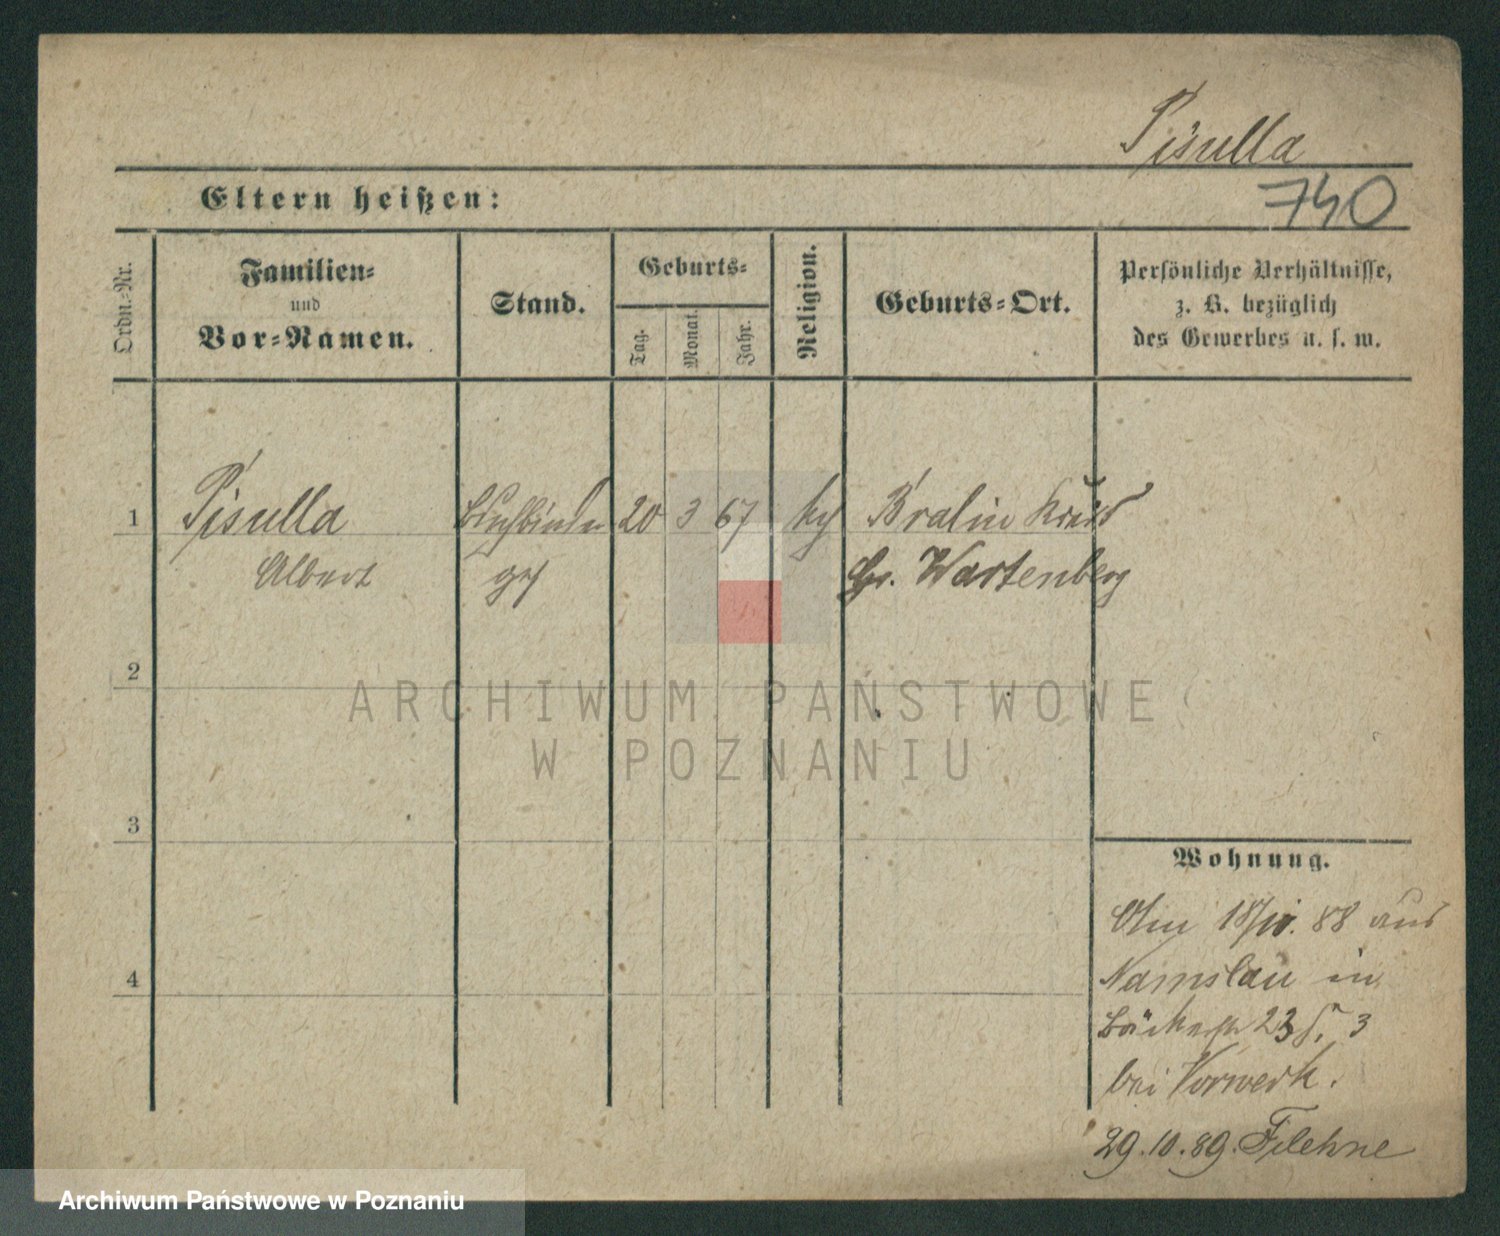 Pisulla
Eltern heißen:
740
Ordn.-Nr.
Familien-
und
Vor-Namen.
Stand.
Geburts-
Tag.
Monat.
Jahr.
Religion.
Geburts-Ort.
Persönliche Verhältnisse,
z. B. bezüglich
des Gewerbes u. s. w.
1 Pisulla Buchbinder 20 3 67 Bralin Kreis
Albert ges Gr. Wartenberg
2
3
4
Wohnung.
18/10. 88 aus
Namslau in
Bäckerstr 23 3
bei Vorwerk.
29.10.89. Filehne
ARCHIWUM PAŃSTWOWE
W POZNANIU
Archiwum Państwowe w Poznaniu